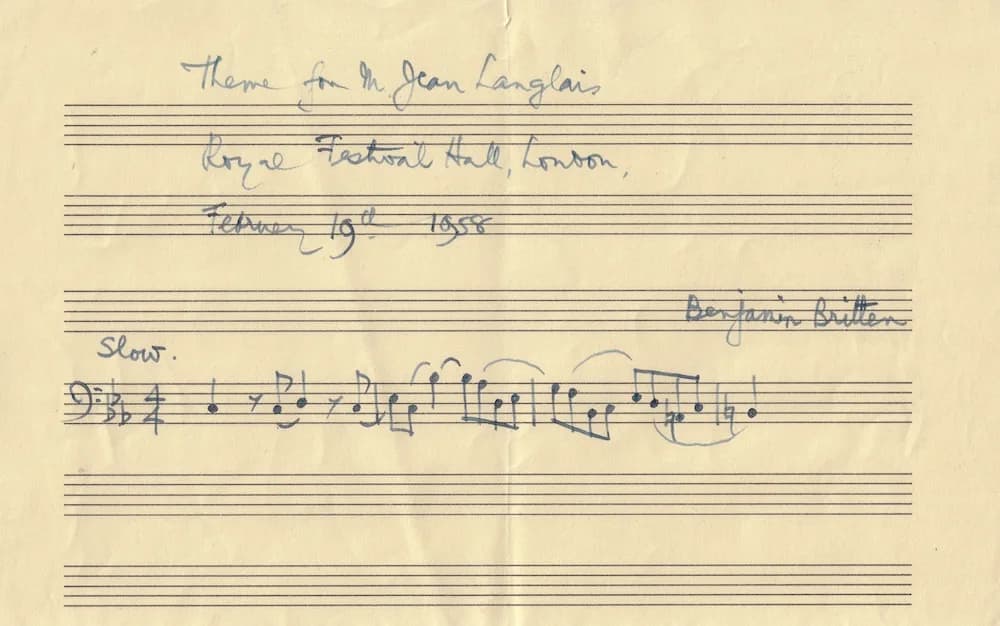 Theme for M. Jean Langlais
Royal Festival Hall, London,
February 19th 1958
Benjamin Britten
Slow.
4
4